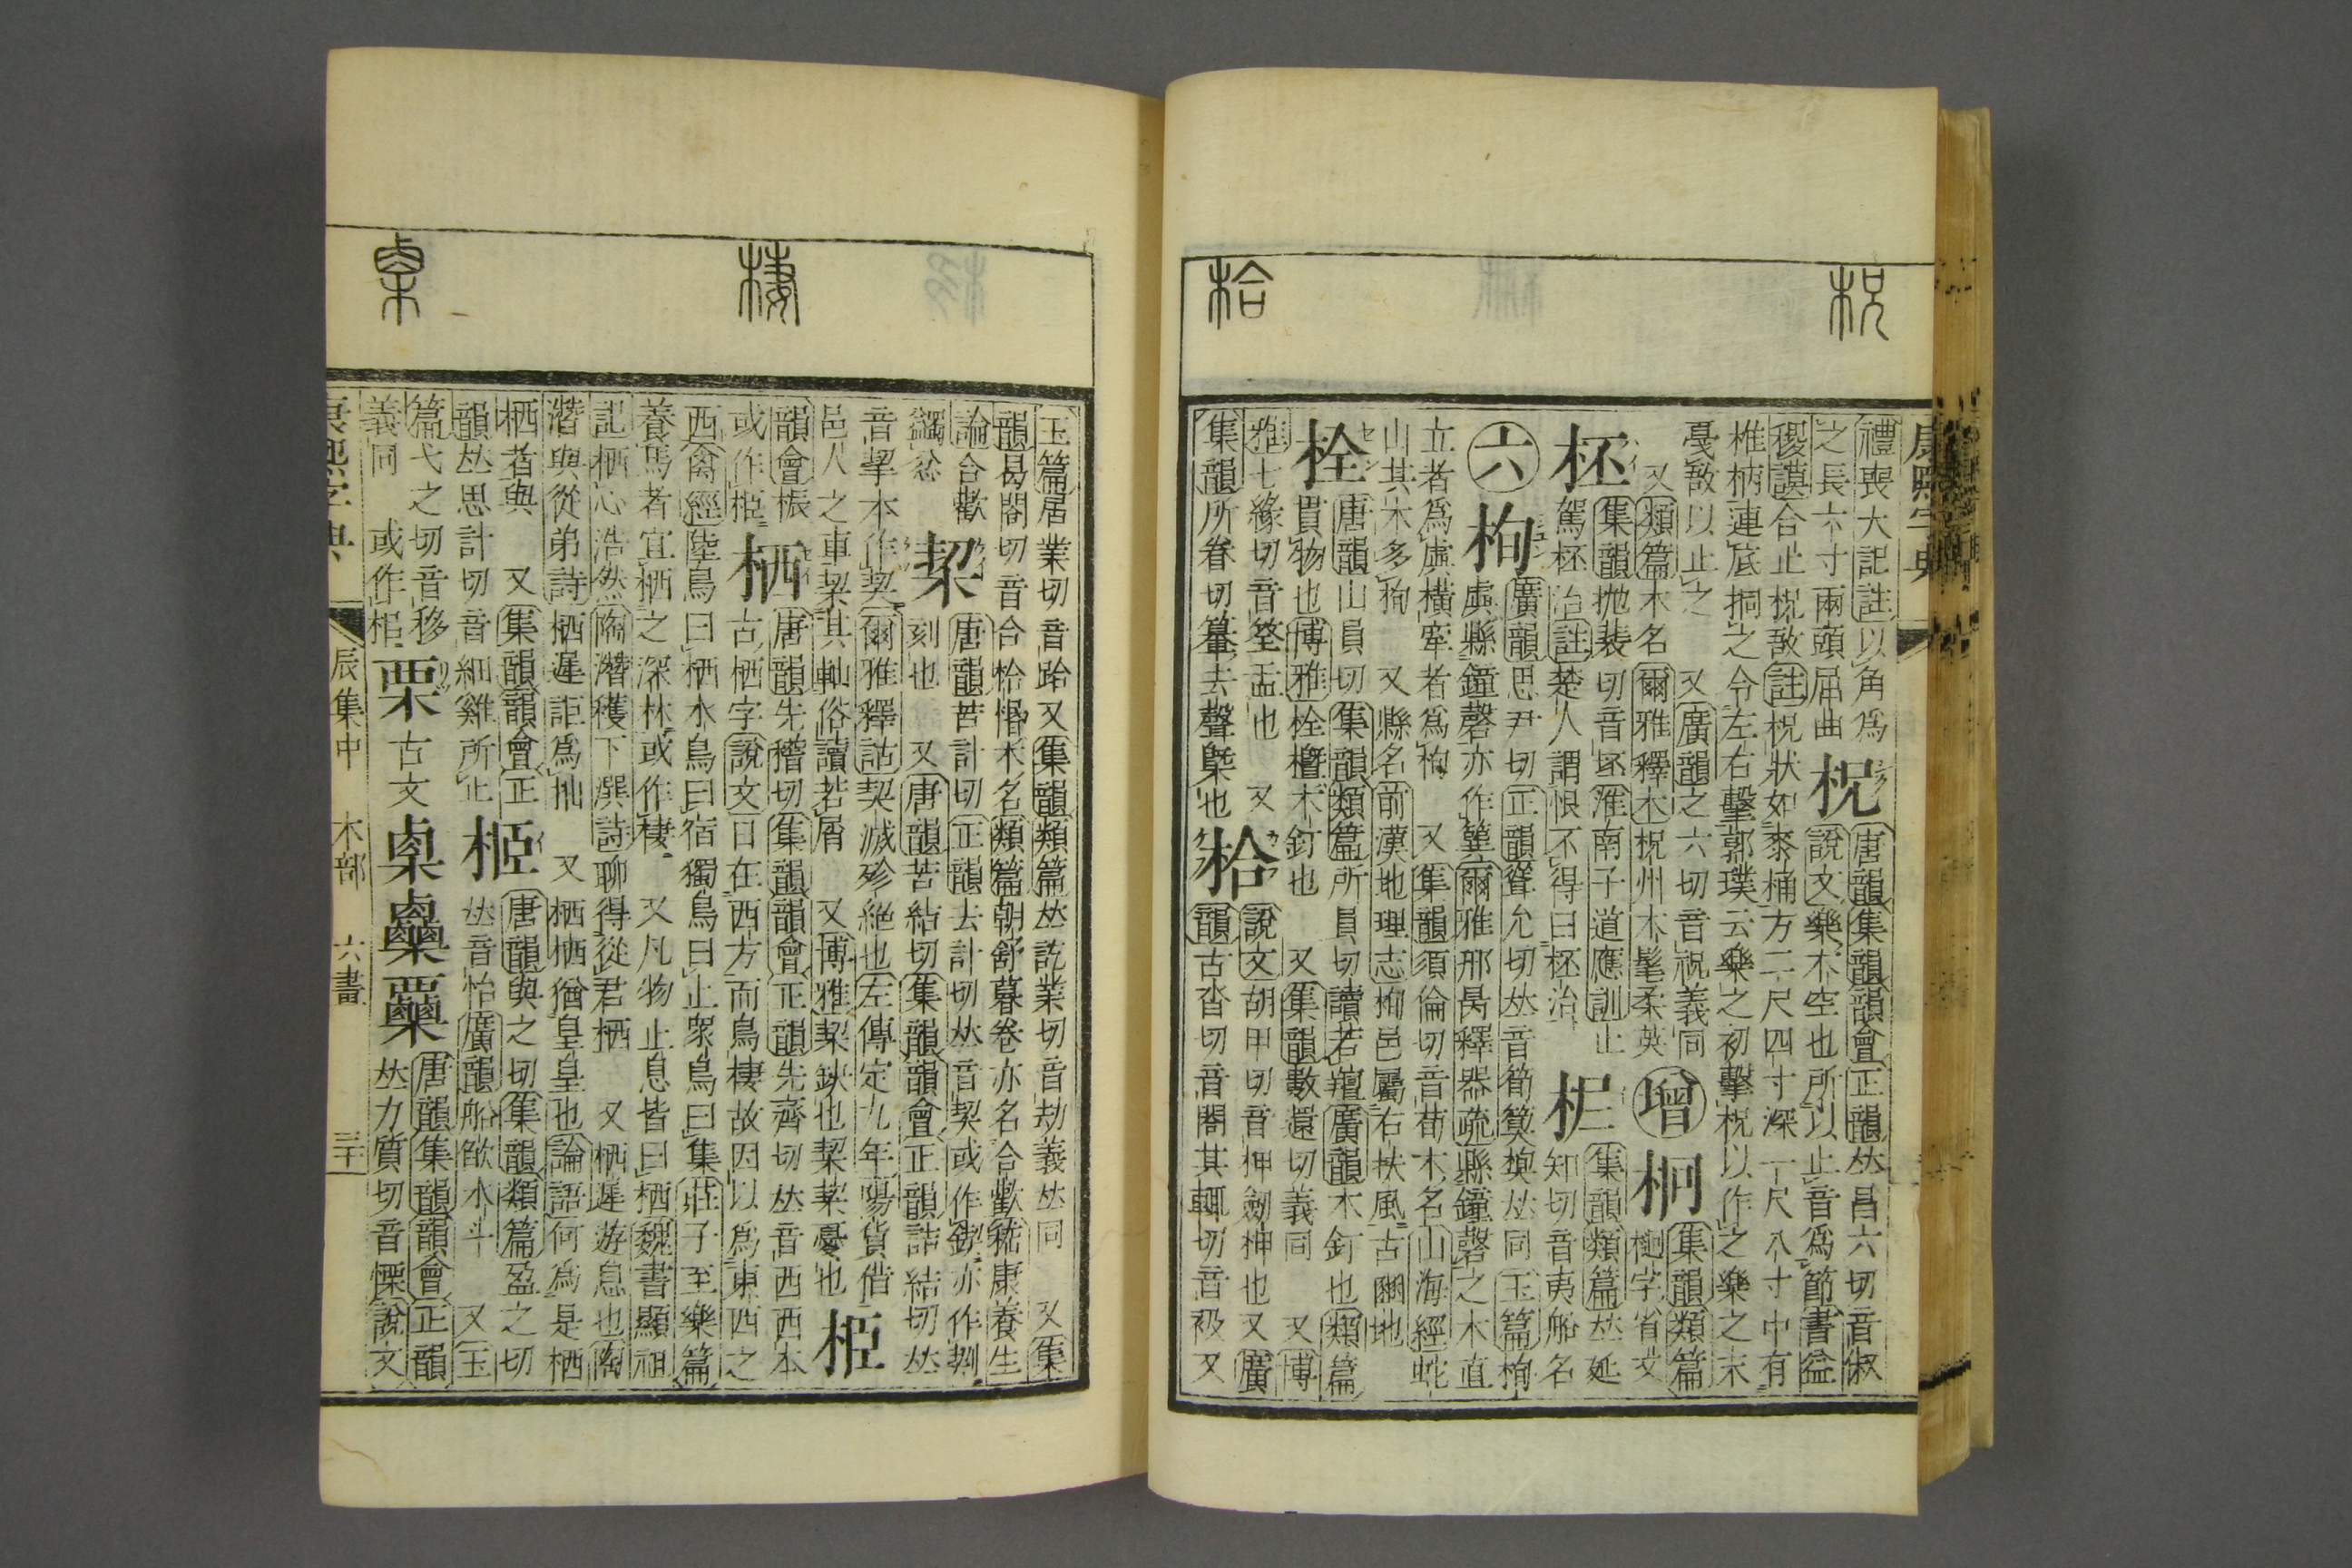 柷
㭘
康熙字典
禮喪大記註以角爲 唐韻集韻韻會正韻𠀤昌六切音俶
之長六寸兩頭屈曲 柷 說文樂木空也所以止音爲節書益
稷謨合止柷敔註柷狀如黍桶方二尺四寸深一尺八寸中有
椎柄連底挏之令左右擊郭璞云樂之初擊柷以作之樂之末
戛敔以止之 又廣韻之六切音祝義同 集韻類篇
又類篇木名 爾雅釋木柷州木髦柔英 增 字省文
集韻抛裴切音坯 淮南子道應訓止 集韻類篇𠀤延
柸 駕柸治註楚人謂恨不得曰柸治 知切音夷船名
廣韻思尹切正韻聳允切𠀤音筍簨𠀤同玉篇栒
六 栒 虡縣鐘磬亦作簨爾雅邢昺釋器疏縣鐘磬之木直
立者爲虡橫牽者爲栒 又集韻須倫切音荀木名山海經蛇
山其木多栒 又縣名前漢地理志栒邑屬右扶風古豳地
唐韻山員切集韻類篇所員切讀若 廣韻木釘也類篇
栓 貫物也博雅栓 木釘也 又集韻數還切義同 又博
雅七緣切音筌盂也 又 說文胡甲切音柙劒柙也又廣
集韻所眷切 去聲 也 㭘 韻古沓切音閤其輒切音衱又
棲
㮚
玉篇居業切音跲又集韻類篇𠀤訖業切音劫義𠀤同 又集
韻曷閤切音合㭘榙木名類篇朝舒暮卷亦名合歡嵇康養生
論合歡 唐韻苦計切正韻去計切𠀤音契或作鍥亦作㓶
蠲忿 栔 刻也 又唐韻苦結切集韻韻會正韻詰結切𠀤
音挈本作契爾雅釋詁契滅殄絕也左傳定九年陽貨借
邑人之車栔其軸俗讀若屑 又博雅栔鈌也栔栔憂也 栕
韻會桭 唐韻先稽切集韻韻會正韻先齊切𠀤音西西本
或作栕 栖 古栖字說文日在西方而鳥棲故因以爲東西之
西禽經陸鳥曰栖水鳥曰宿獨鳥曰止衆鳥曰集莊子至樂篇
養馬者宜栖之深林或作棲 又凡物止息皆曰栖魏書顯祖
記栖心浩然陶潛穫下潠詩聊得從君栖 又栖遲遊息也陶
潛與從弟詩栖遲詎爲拙 又栖栖猶皇皇也論語何爲是栖
栖者與 又集韻韻會正 唐韻與之切集韻類篇盈之切
韻𠀤思計切音細雞所止 𠀤音怡廣韻船歛水斗 又玉
篇弋之切音移 唐韻集韻韻會正韻
義同 或作 栗 古文 㮚 𠀤力質切音慄說文
康熙字典 辰集中 木部 六畫 三十